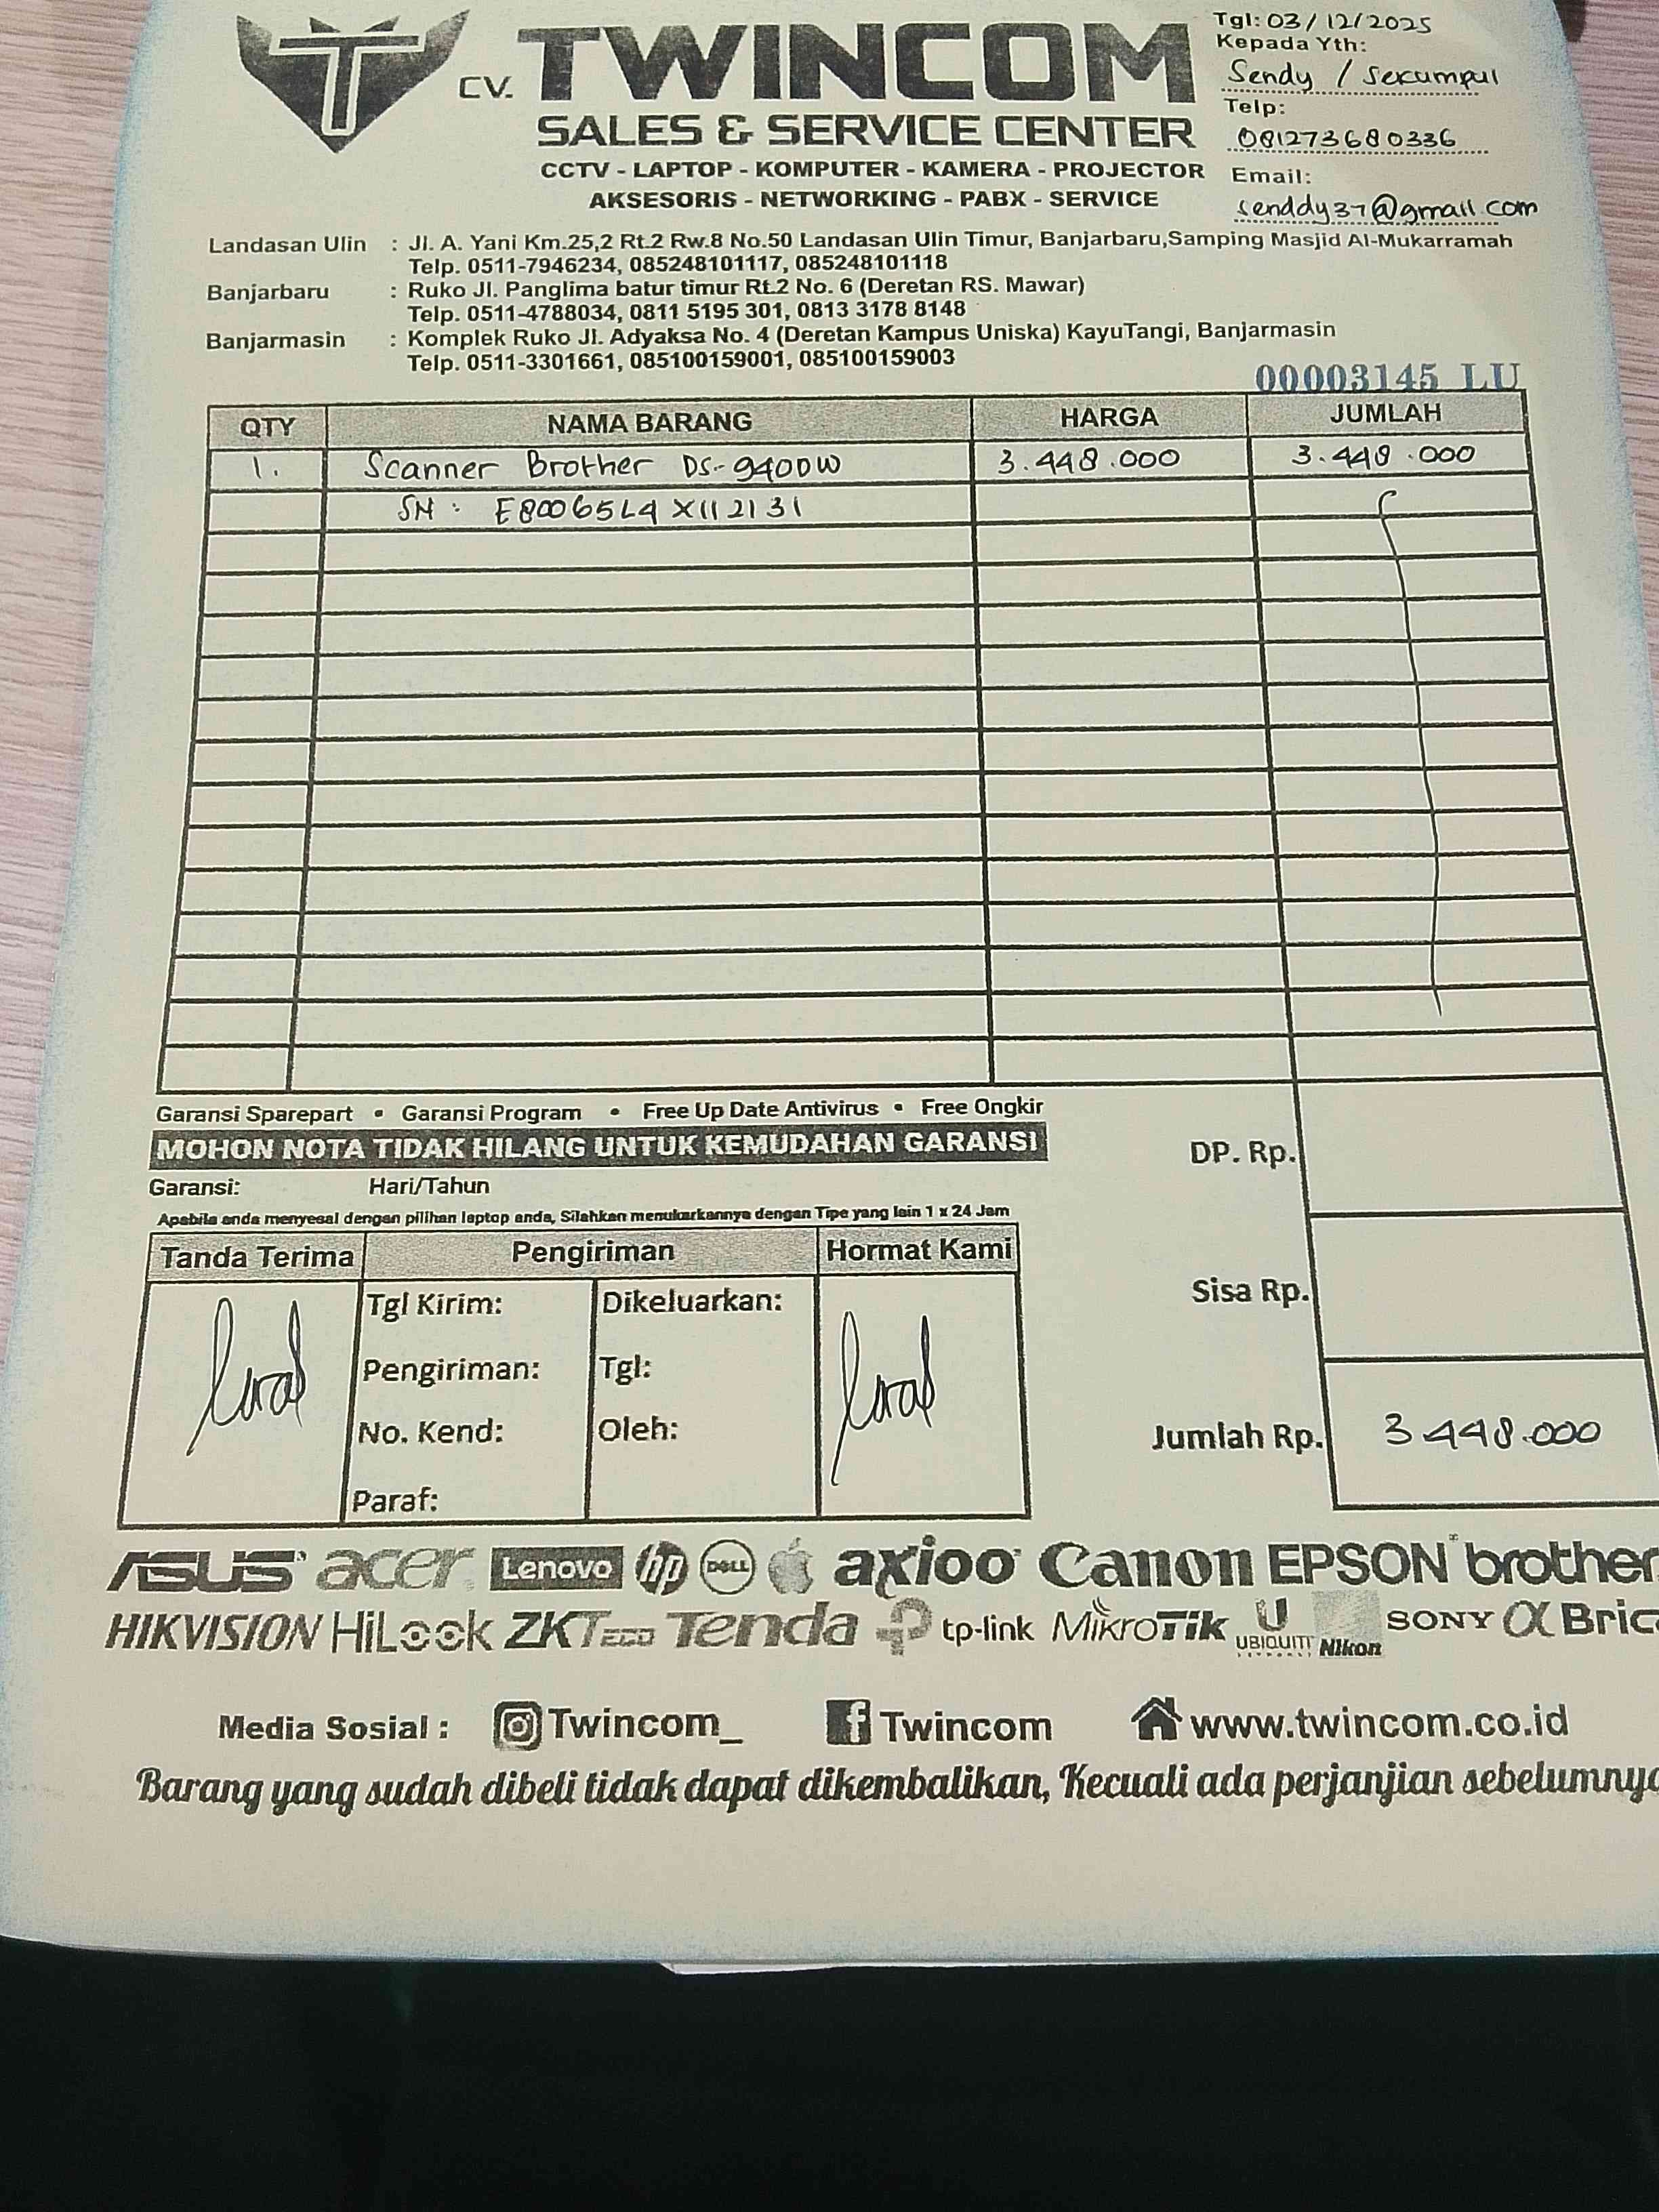 CV. TWINCOM
SALES & SERVICE CENTER
CCTV - LAPTOP - KOMPUTER - KAMERA - PROJECTOR
AKSESORIS - NETWORKING - PABX - SERVICE
Tgl: 03/12/2025
Kepada Yth:
Sendy / Sekumpul
Telp:
081273680336
Email:
senddy37@gmail.com
Landasan Ulin : Jl. A. Yani Km.25,2 Rt.2 Rw.8 No.50 Landasan Ulin Timur, Banjarbaru,Samping Masjid Al-Mukarramah
Telp. 0511-7946234, 085248101117, 085248101118
Banjarbaru : Ruko Jl. Panglima batur timur Rt.2 No. 6 (Deretan RS. Mawar)
Telp. 0511-4788034, 0811 5195 301, 0813 3178 8148
Banjarmasin : Komplek Ruko Jl. Adyaksa No. 4 (Deretan Kampus Uniska) KayuTangi, Banjarmasin
Telp. 0511-3301661, 085100159001, 085100159003
00003145 LU
QTY NAMA BARANG HARGA JUMLAH
1. Scanner Brother DS-940DW 3.448.000 3.448.000
SN : E80065L4X112131
Garansi Sparepart • Garansi Program • Free Up Date Antivirus • Free Ongkir
MOHON NOTA TIDAK HILANG UNTUK KEMUDAHAN GARANSI
Garansi: Hari/Tahun
Apabila anda menyesal dengan pilihan laptop anda, Silahkan menukarkannya dengan Tipe yang lain 1 x 24 Jam
DP. Rp.
Sisa Rp.
Jumlah Rp. 3.448.000
Tanda Terima Pengiriman Hormat Kami
Tgl Kirim: Dikeluarkan:
Pengiriman: Tgl:
No. Kend: Oleh:
Paraf:
ASUS acer Lenovo hp DELL axioo Canon EPSON brother
HIKVISION HiLook ZKTeco Tenda tp-link MikroTik U UBIQUITI Nikon SONY α Bric
Media Sosial : Twincom_ Twincom www.twincom.co.id
Barang yang sudah dibeli tidak dapat dikembalikan, Kecuali ada perjanjian sebelumnya